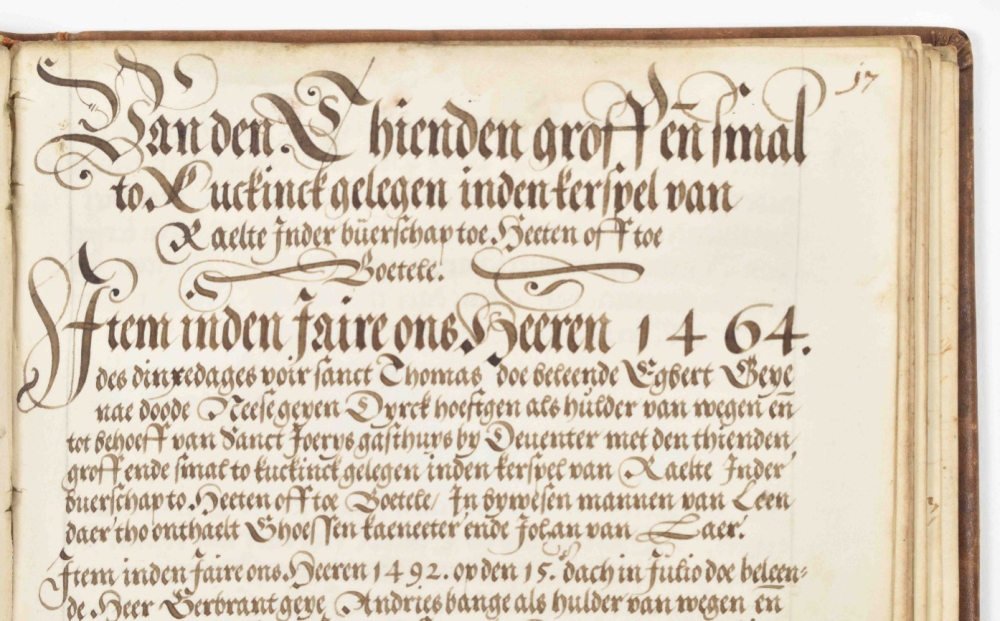 17
Van den Thienden groff en̄ smal
to Kuckinck gelegen inden kerspel van
Raelte Inder buerschap toe Heeten off toe
Boetele.
Item inden Jaire ons Heeren 1464.
des dinxedages voir sanct Thomas doe beleende Egbert Geye
nae doode Neese geyen Dyrck hoeftgen als hulder van wegen en̄
tot behoeff van Sanct Joerys gasthuys by Deuenter met den thienden
groff ende smal to kuckinck gelegen inden kerspel van Raelte Inder
buerschap to Heeten off toe Boetele / In bywesen mannen van Leen
daer tho onthaelt Ghoessen kaeneeter ende Johan van Laer.
Item inden Jaire ons Heeren 1492. op den 15. dach in Julio doe beleen=
de Heer Gerbrant geye Andries bange als hulder van wegen en̄